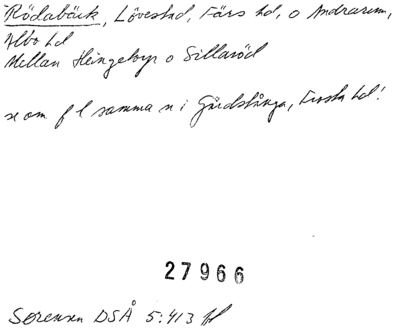 Rödabäck, Lövestad, Färs hd, o Andrarum,
Albo hd
Mellan Heingetorp o Sillaröd
se om f l samma n i Gårdstånga, Frosta hd!
27966
Sørensen DSÅ 5:413 ff